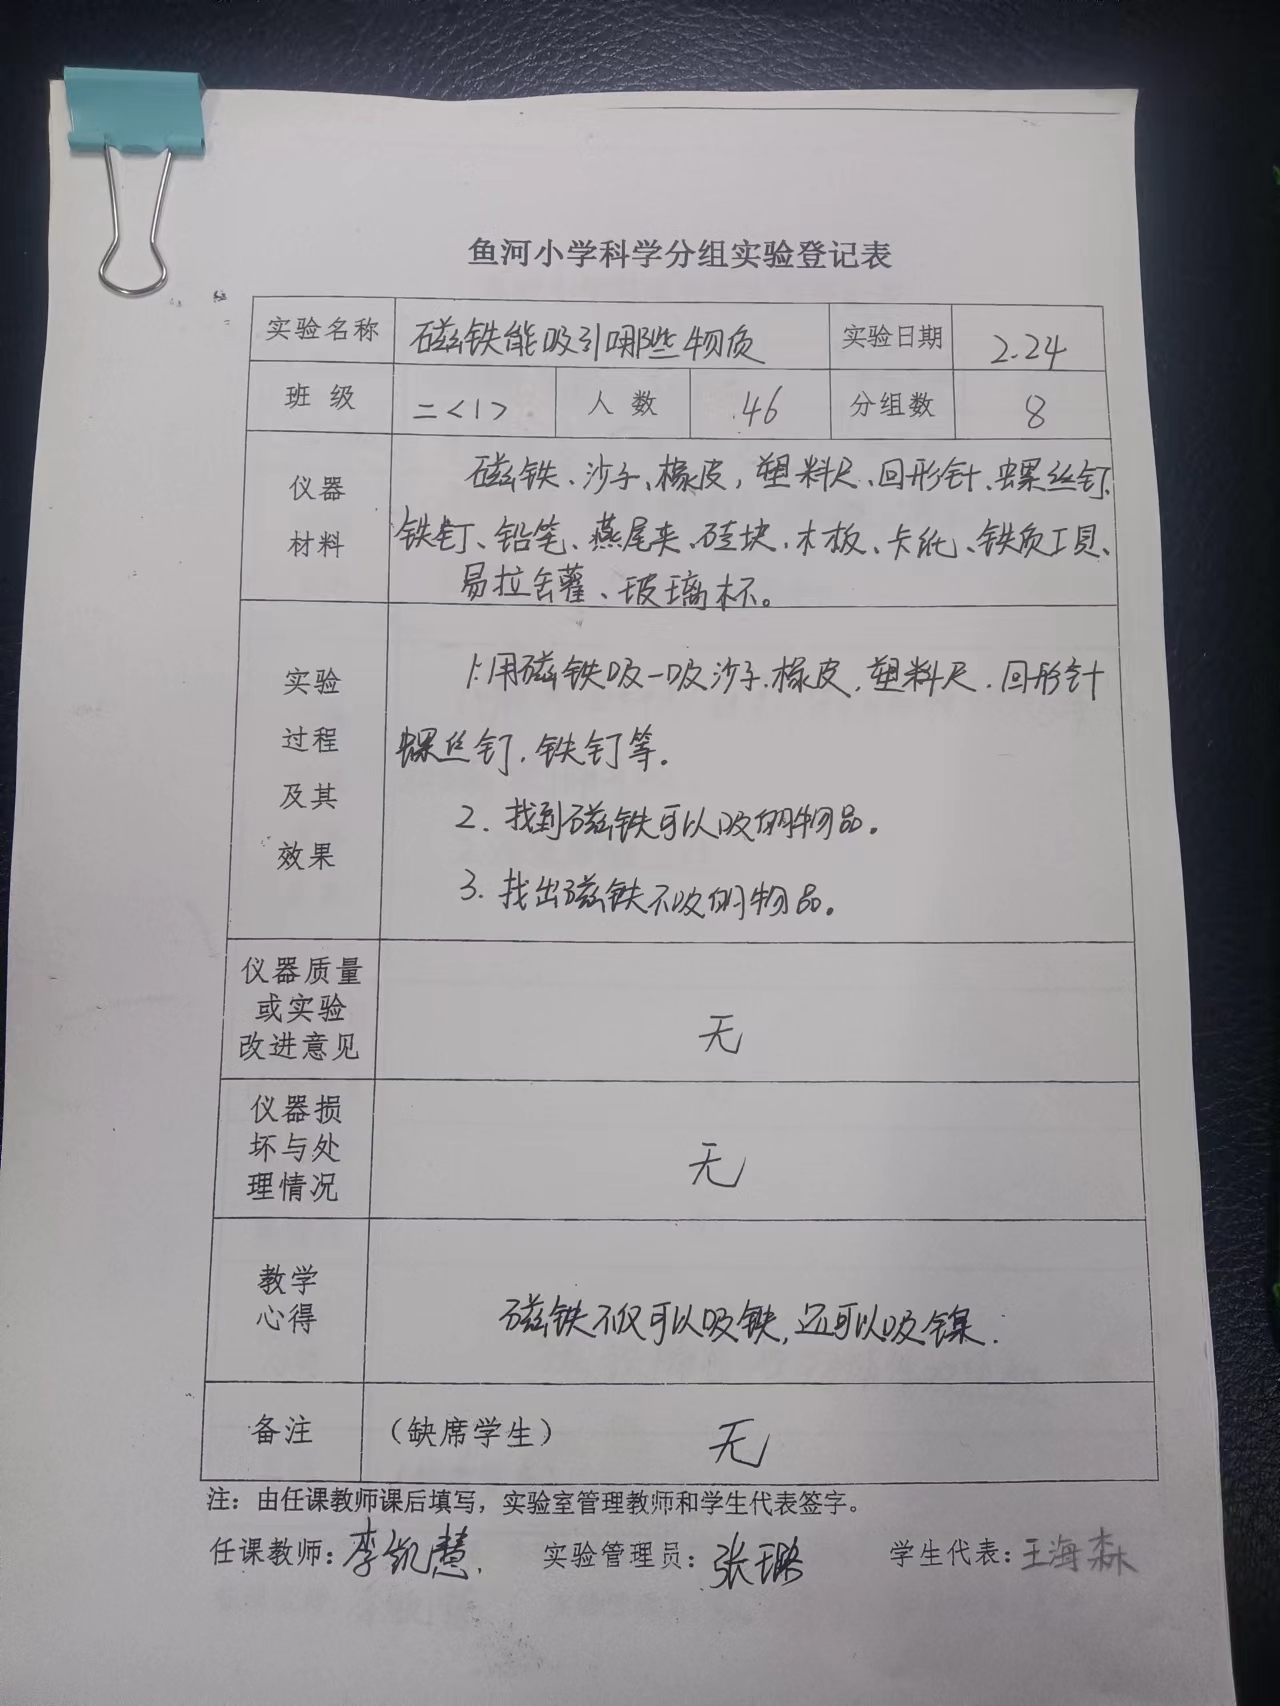 鱼河小学科学分组实验登记表
实验名称 磁铁能吸引哪些物质 实验日期 2.24
班 级 二<1> 人 数 46 分组数 8
仪器 磁铁、沙子、橡皮，塑料尺、回形针、螺丝钉、
材料 铁钉、铅笔、燕尾夹、硅块、木板、卡纸、铁质工具、
易拉罐、玻璃杯。
实验 1.用磁铁吸一吸沙子.橡皮，塑料尺.回形针
过程 螺丝钉，铁钉等。
及其 2.找到磁铁可以吸的物品。
效果 3.找出磁铁不吸的物品。
仪器质量
或实验
改进意见 无
仪器损
坏与处
理情况 无
教学
心得 磁铁不仅可以吸铁，还可以吸镍.
备注 （缺席学生） 无
注：由任课教师课后填写，实验室管理教师和学生代表签字。
任课教师：李凯慧. 实验管理员：张 学生代表：王海森